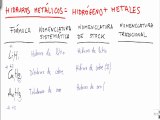 HIDRUROS METÁLICOS = HIDRÓGENO + METALES
FÓRMULA NOMENCLATURA NOMENCLATURA NOMENCLATURA
SISTEMÁTICA DE STOCK TRADICIONAL
LiH Hidruro de litio Hidruro de litio
CuH₂ Dihidruro de cobre Hidruro de cobre (II)
AuH₃ Trihidruro de oro Hidruro de oro